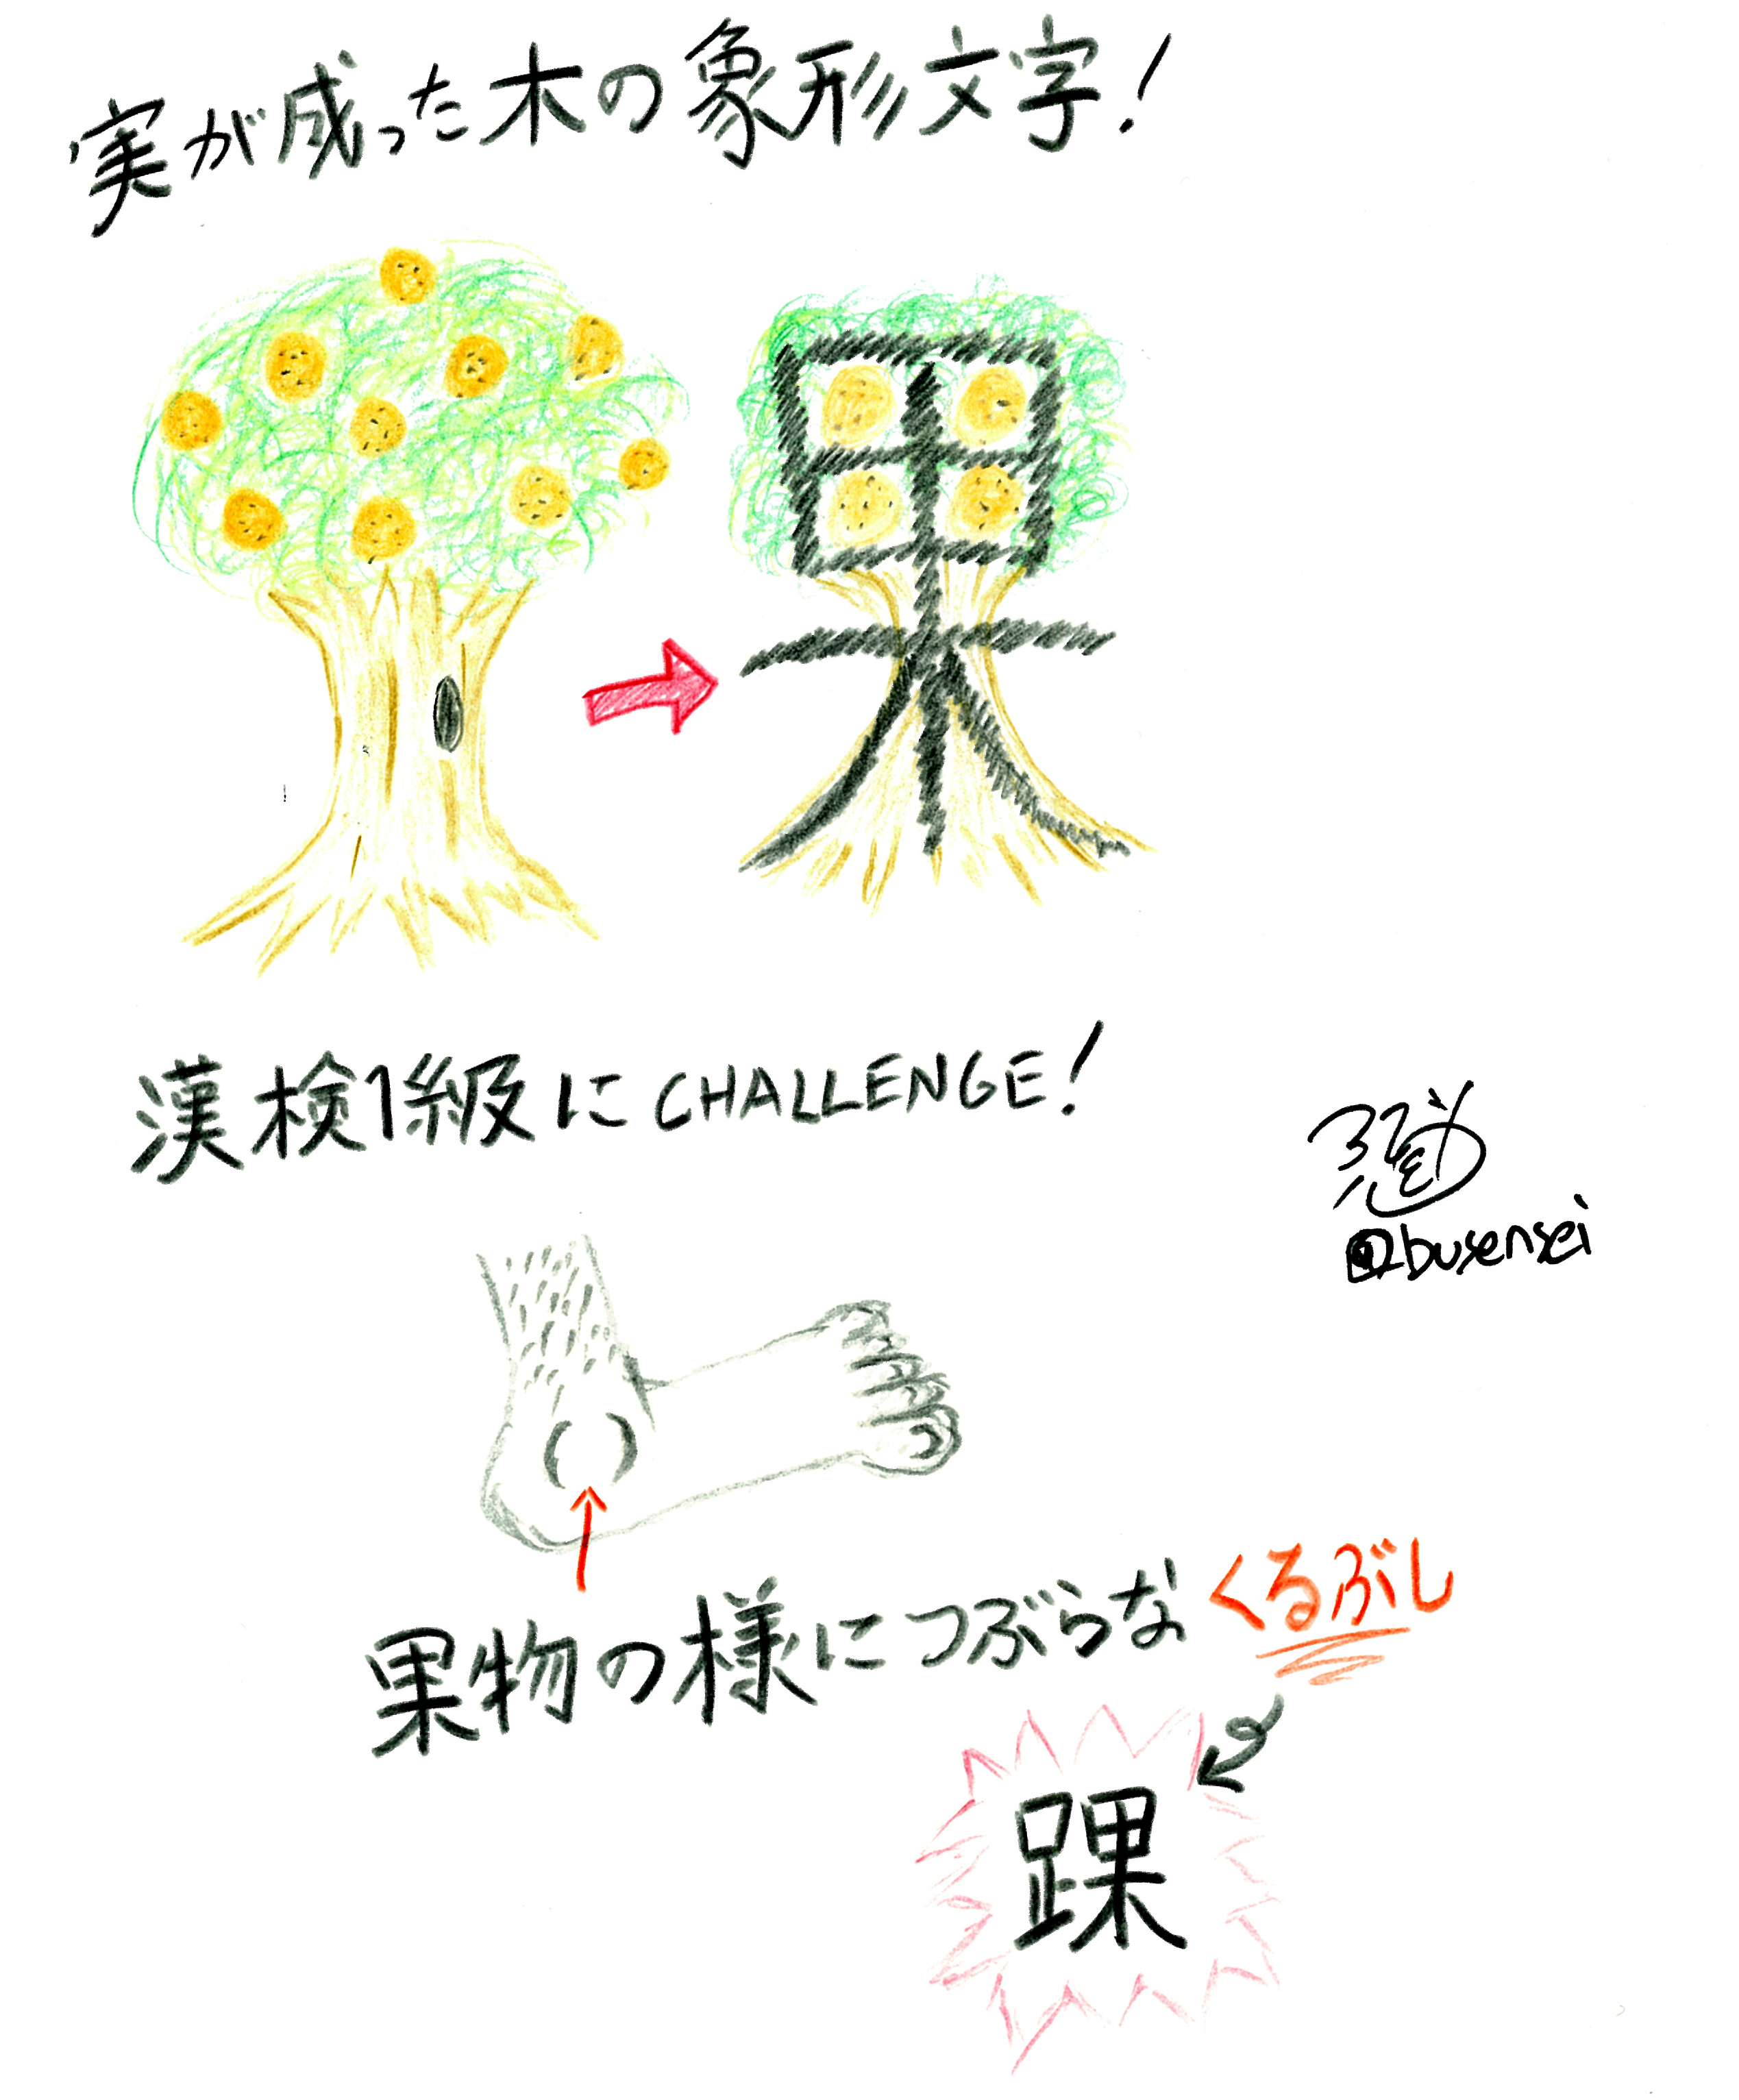 実が成った木の象形文字!
果
漢検1級にCHALLENGE!
@busensei
果物の様につぶらなくるぶし
踝